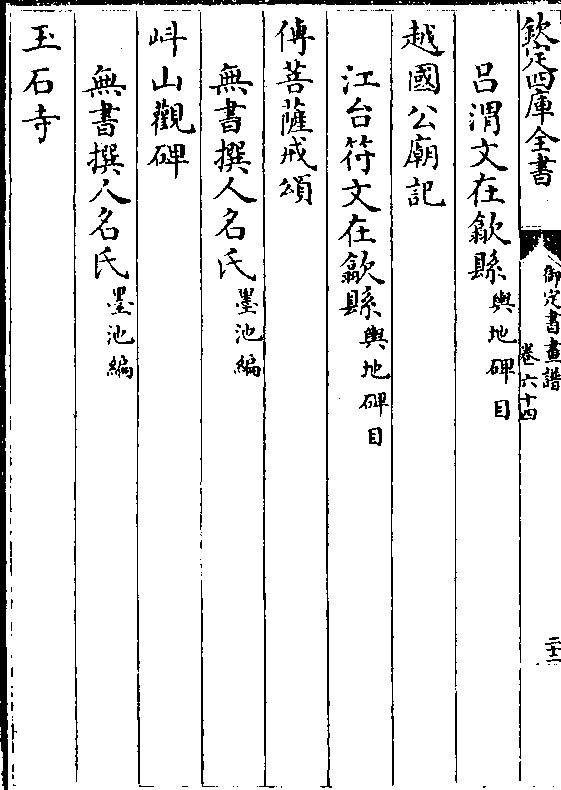 欽定四庫全書
御定書畫譜
卷六十四
二十二
呂渭文在歙縣輿地碑目
越國公廟記
江台符文在歙縣輿地碑目
傅菩薩戒頌
無書撰人名氏墨池編
㟁山觀碑
無書撰人名氏墨池編
玉石寺